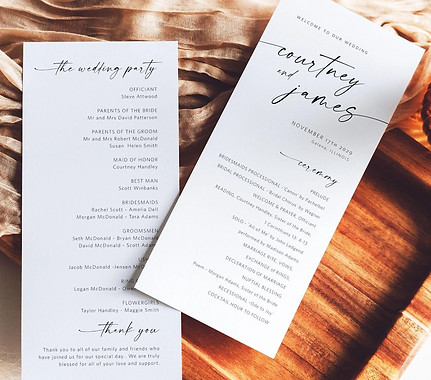 the wedding party
OFFICIANT
Steve Attwood
PARENTS OF THE BRIDE
Mr and Mrs David Patterson
PARENTS OF THE GROOM
Mr and Mrs Robert McDonald
Susan Helen Smith
MAID OF HONOR
Courtney Handley
BEST MAN
Scott Winbanks
BRIDESMAIDS
Rachel Scott - Amelia Dell
Morgan McDonald - Tara Adams
GROOMSMEN
Seth McDonald - Bryan McDonald
David McDonald - Scott Adams
Jacob McDonald - Jensen
RING
Logan McDonald
FLOWERGIRLS
Taylor Handley - Maggie Smith
thank you
Thank you to all of our family and friends who
have joined us for our special day. We are truly
blessed for all of your love and support.
WELCOME TO OUR WEDDING
courtney
and
james
NOVEMBER 17TH 2020
Galena, ILLINOIS
ceremony
PRELUDE
BRIDESMAIDS PROCESSIONAL - 'Canon' by Pachelbel
BRIDAL PROCESSIONAL - 'Bridal Chorus' by Wagner
WELCOME & PRAYER, Officiant
READING, Courtney Handley, Sister of the Bride
1 Corinthians 13: 4-13
SOLO - 'All of Me' by John Legend
Performed by Madison Adams
MARRIAGE RISE, VOWS,
EXCHANGE OF RINGS
DECLARATION OF MARRIAGE
NUPTIAL BLESSING
Poem - Morgan Adams, Sister of the Bride
RECESSIONAL - 'Ode to Joy'
COCKTAIL HOUR TO FOLLOW